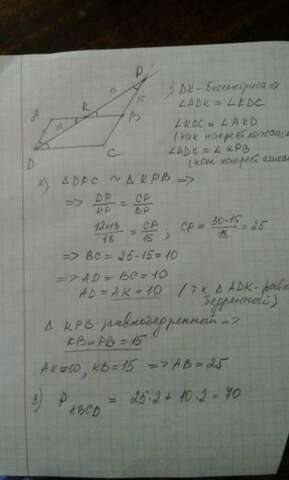 P
18
15
A
K
B
12
D
C
1) DK - биссектриса =>
∠ADK = ∠KDC
∠KDC = ∠AKD
(как накрест лежащие)
∠ADK = ∠KPB
(как накрест лежащие)
2) ΔDPC ~ ΔKPB =>
=> DP/KP = CP/BP
12+18/18 = CP/15 ; CP = 30·15/18 = 25
=> BC = 25-15 = 10
=> AD = BC = 10
AD = AK = 10 (т.к. ΔADK - равнобедренный)
Δ KPB - равнобедренный =>
KB = PB = 15
AK = 10, KB = 15 => AB = 25
3) P ABCD = 25·2 + 10·2 = 70